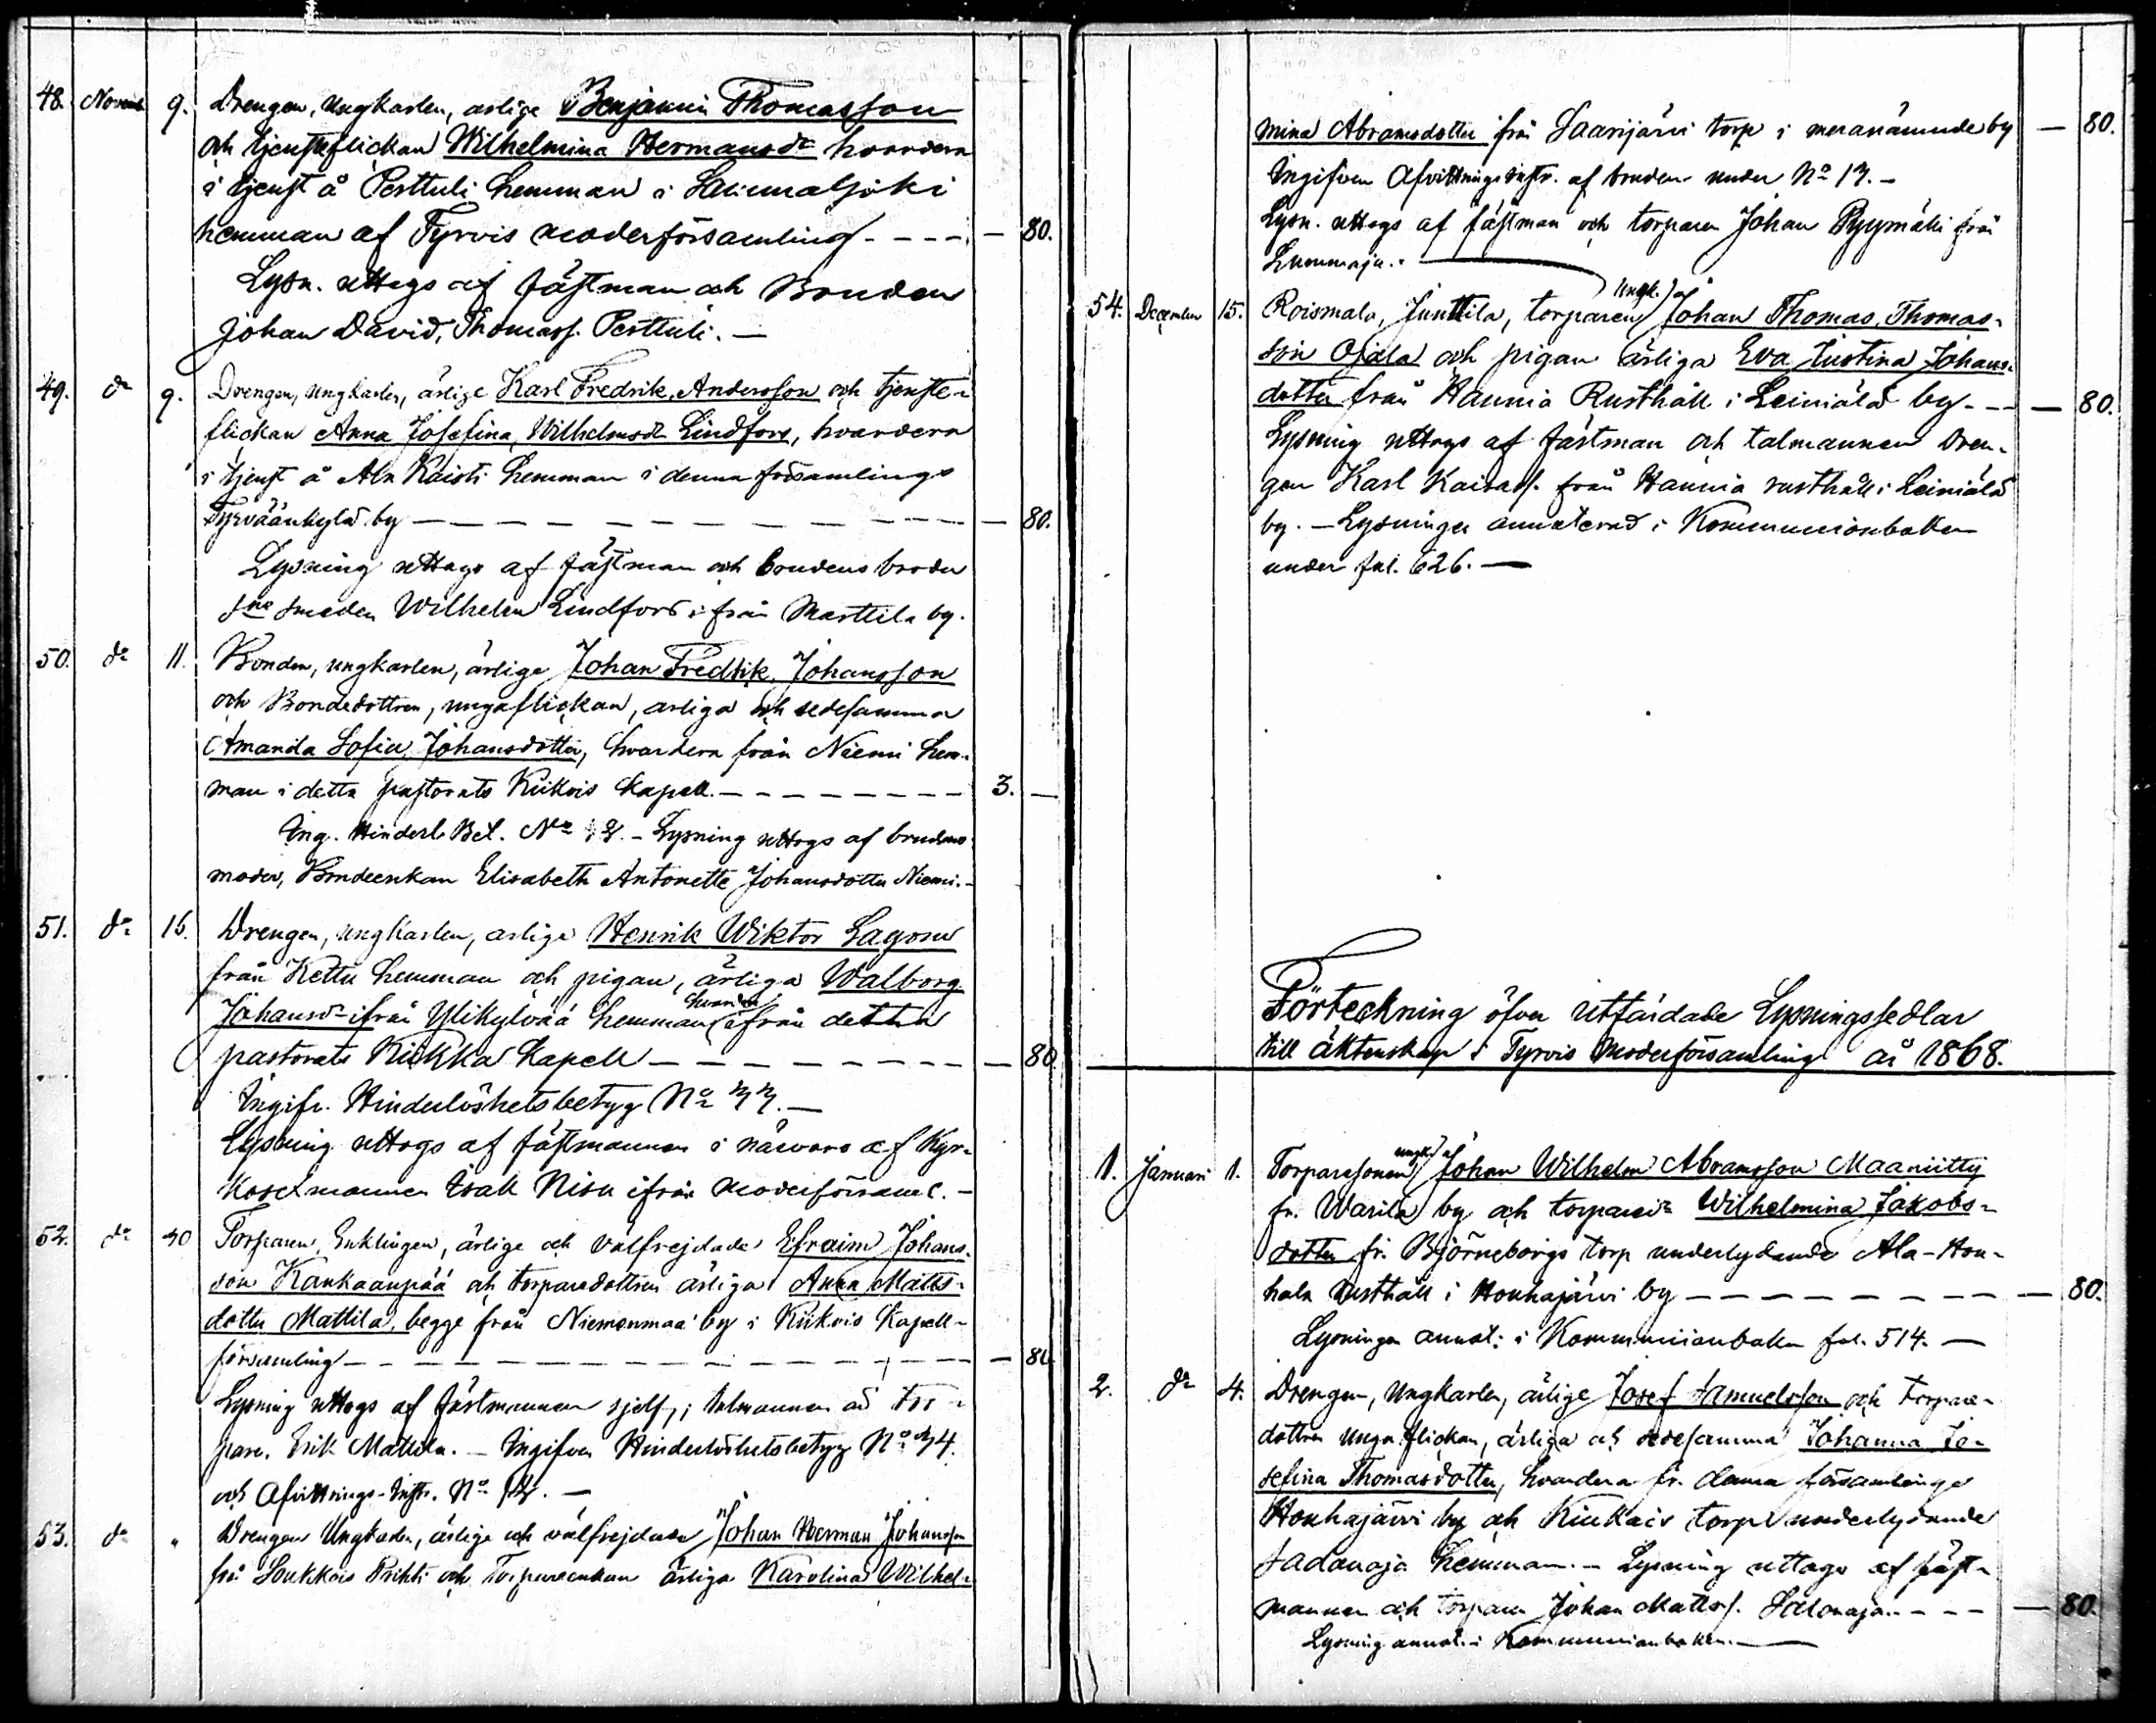 48. Novemb. 9. Drengen, Ungkarlen, ärlige Benjamin Thomasson
och tjensteflickan Wilhelmina Hermansdr hvardera
i tjenst å Perttuli hemman i
hemman af Tyrvis moderförsamling - - - - — 80.
Lysn. uttogs af fästman och Bonden
Johan David, Thomass. Perttuli. —
49. do 9. Drengen, ungkarlen, ärlige Karl Fredrik, Andersson och tjenste-
flickan Anna Josefina, Wilhelmsdr Lindfors, hvardera
i tjenst å Ala Kaisti hemman i denna församlings
Tyrväänkylä by — — — — — 80.
Lysning uttogs af fästman och brudens broder
smeden Wilhelm Lindfors ifrån Marttila by.
50. do 11. Bonden, ungkarlen, ärlige Johan Fredrik, Johansson
och Bondedottren, ungaflickan, ärliga och sedesamma
Amanda Sofia, Johansdotter, hvardera från Niemi hem-
man i detta pastorats Kiikois Kapell. — — — — 3. —
Ing. Hinderl. Bet. No - Lysning uttogs af brudens
moder, Bondeenkan Elisabeth Antonette Johansdotter Niemi. -
51. do 16. Drengen, ungkarlen, ärlige Henrik Wiktor Lagorn
från Kettu hemman och pigan, ärliga Walborg
Johansdr ifrån Ylikylvää hemman hvardera ifrån detta
pastorats Kiikka Kapell — — — — — 80
Ingifv. Hinderlöshetsbetyg No 33. —
Lysning uttogs af fästmannen i närvaro af Kyr-
kosexmannen Isak Nisu ifrån moderförsaml. -
52. do 30 Torparen, Enklingen, ärlige och välfrejdade Efraim Johans-
son Kankaanpää och torparedottren ärliga Anna Matts-
dotter Mattila, begge från Niemenmaa by i Kiikois Kapell-
församling — — — — — 80
Lysning uttogs af fästmannen sjelf, i talmannen od Tor-
pare. Erik Mattila. — Ingifven Hinderlöshetsbetyg No 34.
och Afvittrings-Instr. No 12. —
53. do " Drengen Ungkarlen, ärlige och välfrejdade Johan Herman Johansson
frå Soukkois Prihti och Torpareenkan ärliga Karolina Wilhel-
mina Abramsdotter från Saarijärvi torp i meranämnde by — 80.
Ingifven Afvittringsinstr. af bruden under No 13. -
Lysn. uttogs af fästman och torparen Johan Pyymäki från
Lummaja. -
54. December 15. Roismala, Junttila, torparen, Ungk. äl Johan Thomas, Thomas-
son Ojala och pigan ärliga Eva Justina Johans-
dotter från Hannia Rusthåll i Leiniälä by. - - — 80.
Lysning uttogs af fästman och talmannen Dren-
gen Karl Kaisass. från Hannia rusthåll i Leiniälä
by. — Lysningen annoterad i Kommunionboken
under fol. 626. —
Förteckning öfver utfärdade Lysningssedlar
till äktenskap i Tyrvis Moderförsamling år 1868.
1. Januari 1. Torparesonen, ungk. äl Johan Wilhelm Abramsson Maaniitty
fr. Warila by och torparedr Wilhelmina Jakobs-
dotter fr. Björneborgs torp underlydande Ala-Hon-
hala Rusthåll i Houhajärvi by — — — — — 80.
Lysningen annot: i Kommunionboken fol. 514. —
2. do 4. Drengen, Ungkarlen, ärlige Josef Samuelsson och Torpare-
dottren Unga flickan, ärliga och sedesamma Johanna Jo-
sefina Thomasdotter, hvardera fr. denna församlings
Houhajärvi by och Kiukais torp underlydande
Sadanoja hemman. — Lysning uttogs af fäst-
mannen och torparen Johan Mattss. Salonoja. - - - — 80.
Lysning annot. i Kommunionboken. —